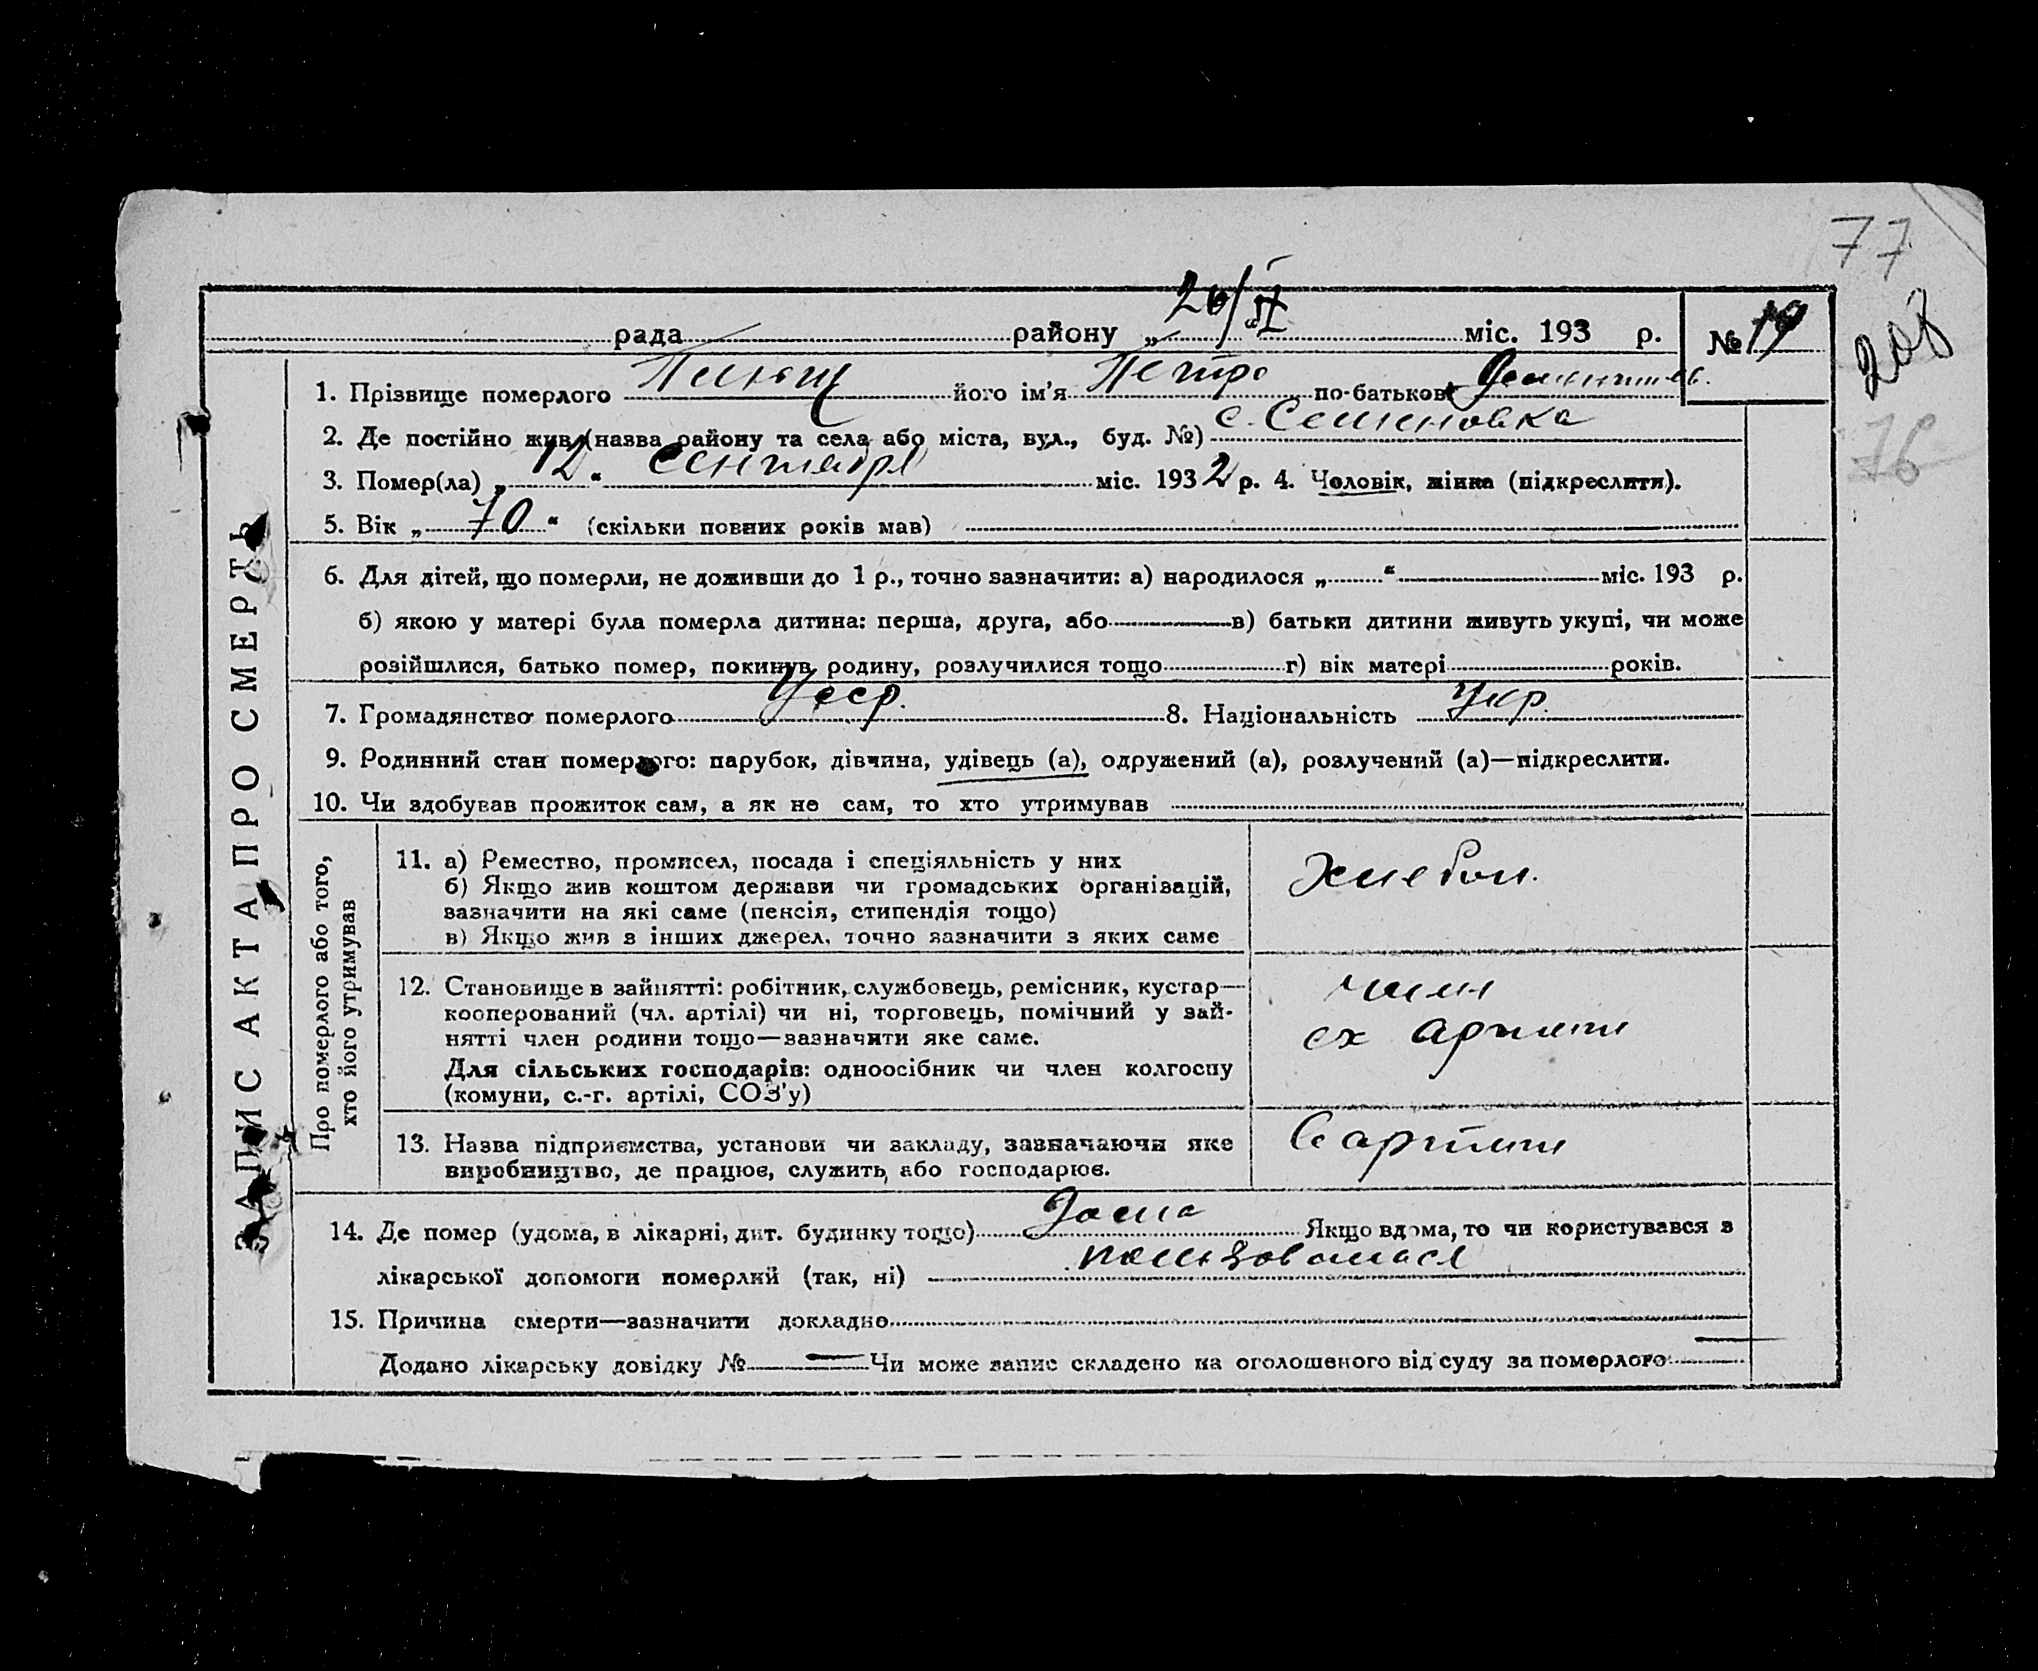 77
208
76
рада района районy „ 26/ІХ “ міс. 193 р. № 19
1. Прізвище померлого Плющ його ім'я Петро по-батькові
2. Де постійно жив (назва району та села або міста, вул., буд. №) с. Семеновка
3. Помер(ла) „ 12 “ Сентября міс. 1932 р. 4. Чоловік, жінка (підкреслити).
5. Вік „ 70 “ (скільки повних років мав)
6. Для дітей, що померли, не доживши до 1 р., точно зазначити: а) народилося „ “ міс. 193 р.
б) якою у матері була померла дитина: перша, друга, або в) батьки дитини живуть укупі, чи може
розійшлися, батько помер, покинув родину, розлучилися тощо г) вік матері років.
7. Громадянство померлого Усср. 8. Національність Укр.
9. Родинний стан померлого: парубок, дівчина, удівець (а), одружений (а), розлучений (а)—підкреслити.
10. Чи здобував прожиток сам, а як не сам, то хто утримував
ЗАПИС АКТА ПРО СМЕРТЬ
Про померлого або того,
хто його утримував
11. а) Ремество, промисел, посада і спеціяльність у них
б) Якщо жив коштом держави чи громадських організацій,
зазначити на які саме (пенсія, стипендія тощо)
в) Якщо жив з інших джерел, точно зазначити з яких саме
Хлебоп.
12. Становище в зайнятті: робітник, службовець, ремісник, кустар—
кооперований (чл. артілі) чи ні, торговець, помічний у зай-
нятті член родини тощо—зазначити яке саме.
Для сільських господарів: одноосібник чи член колгоспу
(комуни, с.-г. артілі, СОЗ'у)
член
сх артили
13. Назва підприємства, установи чи закладу, зазначаючи яке
виробництво, де працює, служить, або господарює.
В артили
14. Де помер (удома, в лікарні, дит. будинку тощо) Дома Якщо вдома, то чи користувався з
лікарської допомоги померлий (так, ні) пользовался
15. Причина смерти—зазначити докладно
Додано лікарську довідку № — Чи може запис складено на оголошеного від суду за померлого —